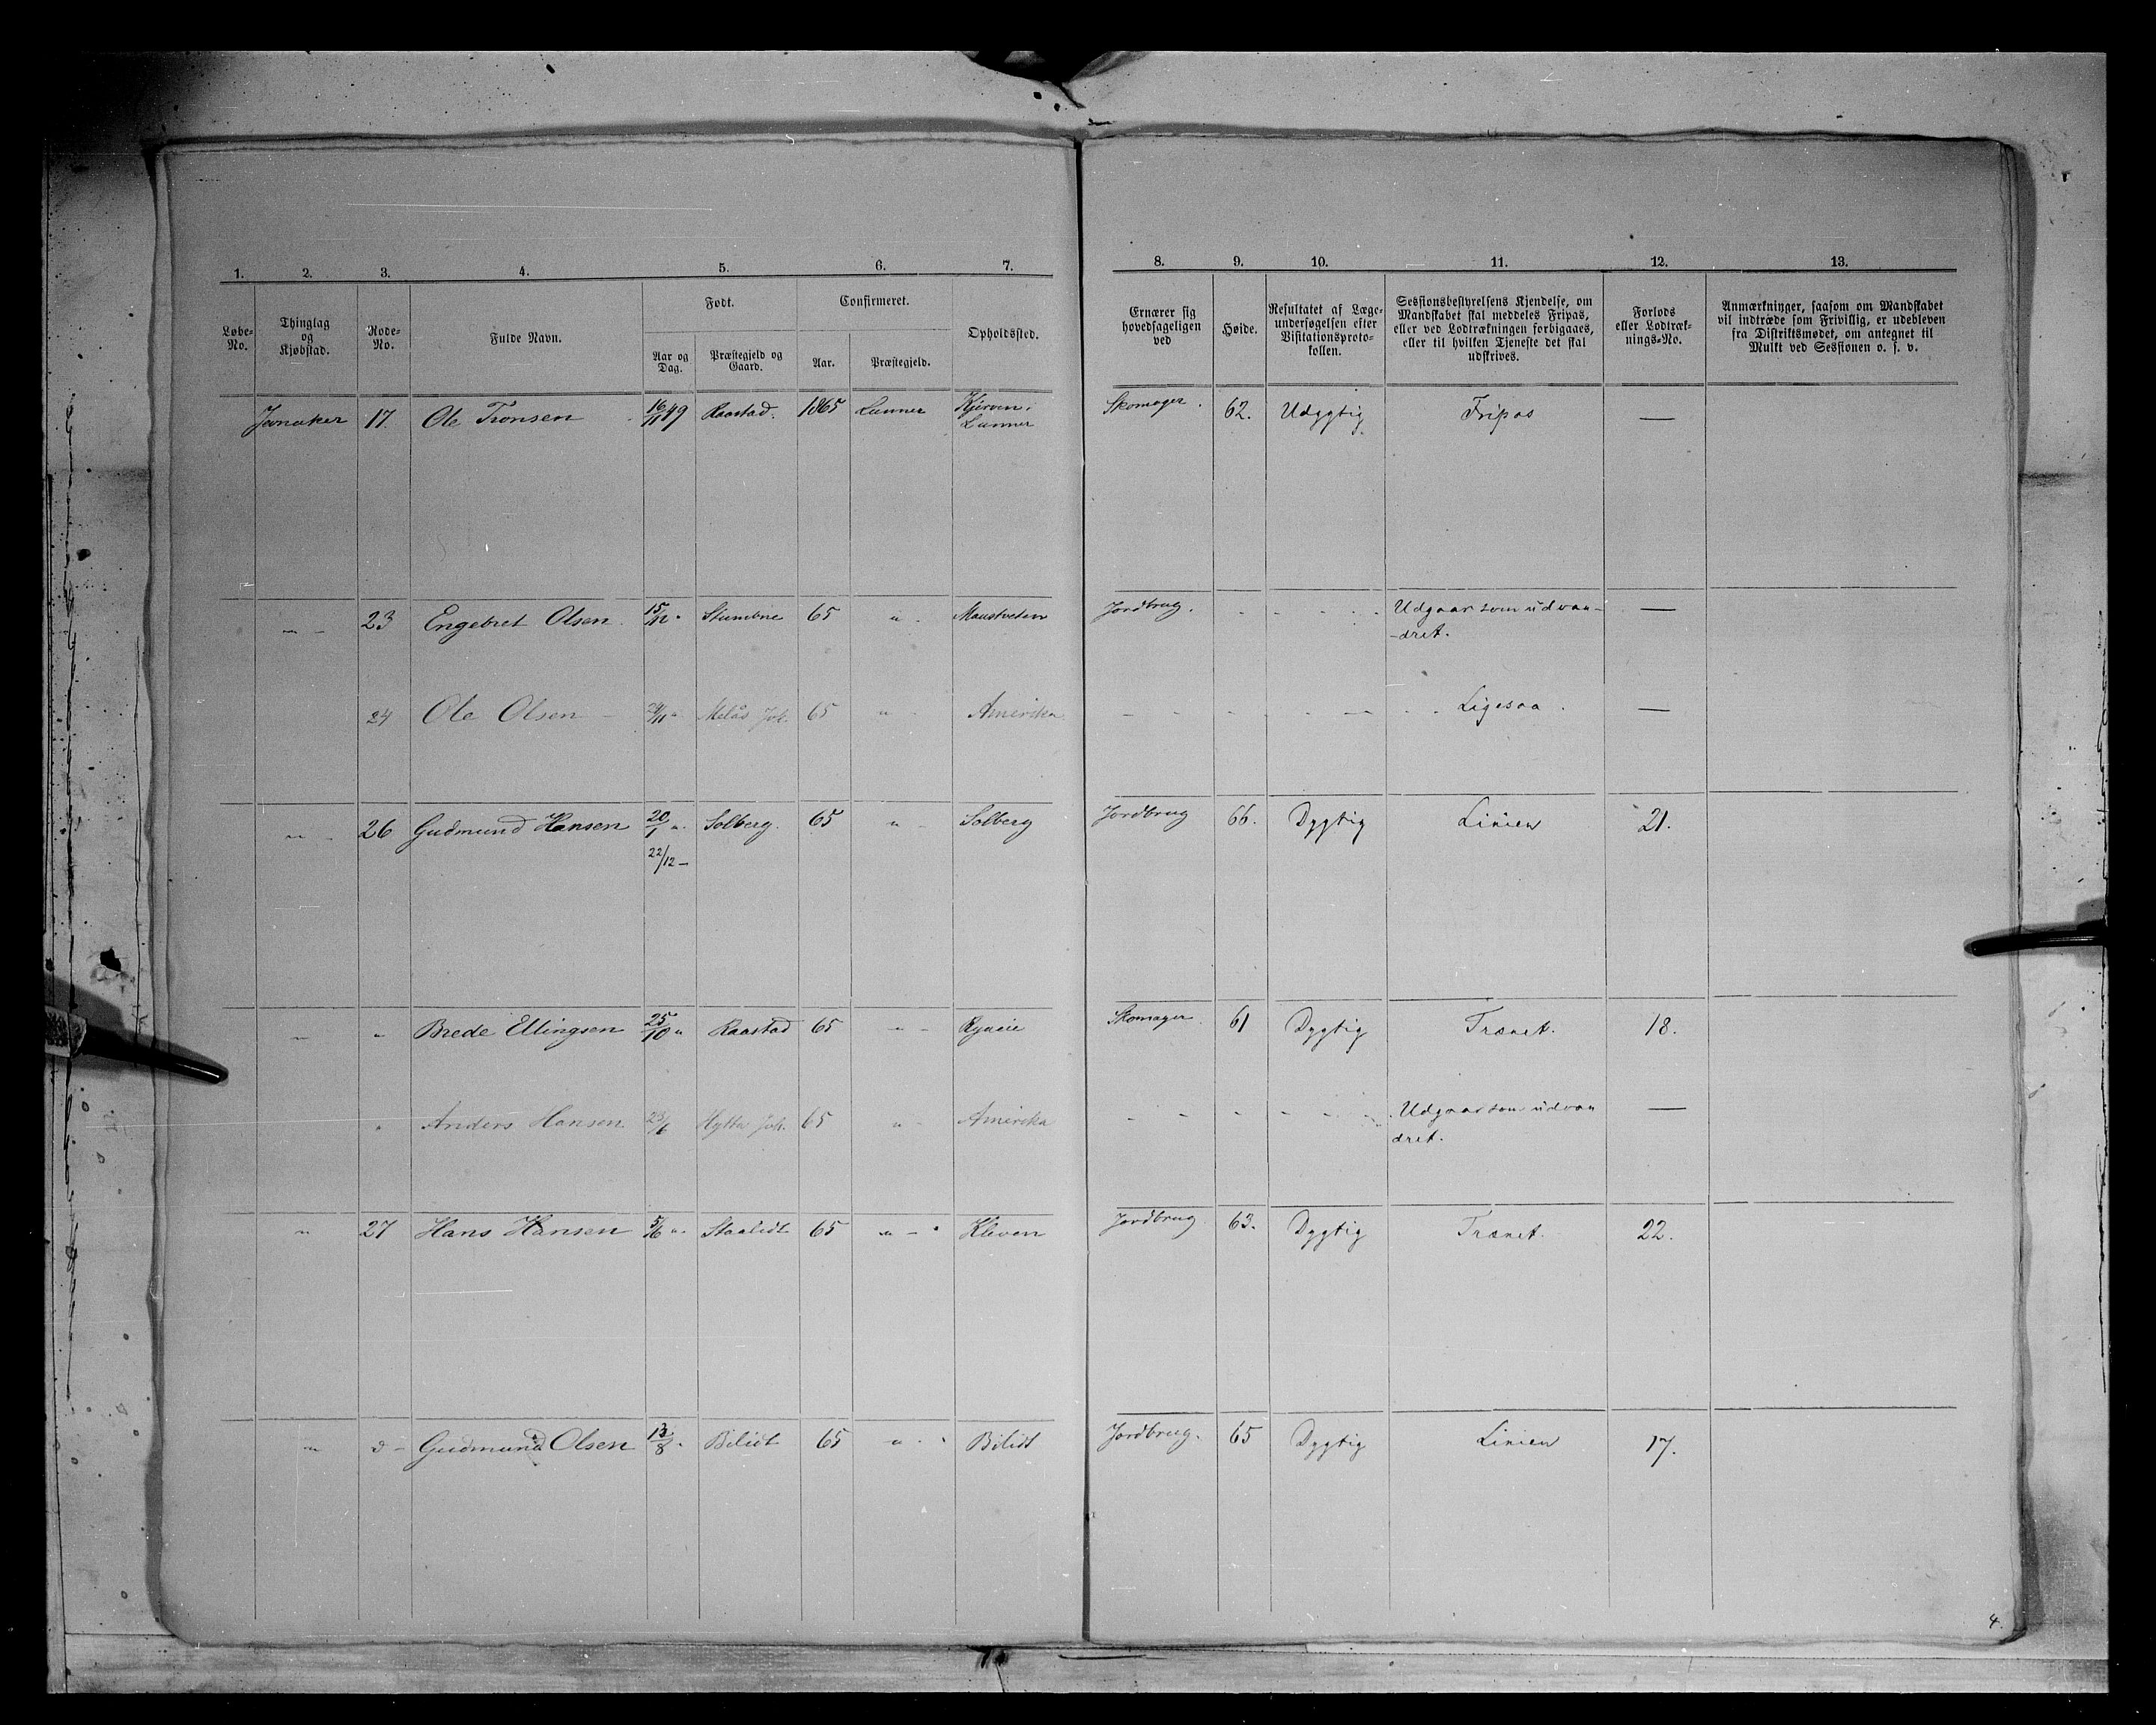 1. 2. 3. 4. 5. 6. 7. 8. 9. 10. 11. 12. 13.
Løbe-No. Thinglag og Kjøbstad. Rode-No. Fulde Navn. Født. Aar og Dag. Præstegjeld og Gaard. Confirmeret. Aar. Præstegjeld. Opholdssted. Ernærer sig hovedsageligen ved Høide. Resultatet af Læge-undersøgelsen efter Visitationsproto-kollen. Sessionsbestyrelsens Kjendelse, om Mandskabet skal meddeles Fripas, eller ved Lodtrækningen forbigaaes, eller til hvilken Tjeneste det skal udskrives. Forlods eller Lodtræk-nings-No. Anmærkninger, saasom om Mandskabet vil indtræde som Frivillig, er udebleven fra Distriktsmødet, om antegnet til Mulkt ved Sessionen o. s. v.
Jevnaker 17. Ole Tronsen 16/11 49 Raastad. 1865 Lunner Kjerven, Lunner Skomager. 62. Udygtig Fripas —
" - 23 Engebret Olsen. 15/12 " 65 " Jordbrug. - - - - Udgaar som udvan-
-dret. —
24 Ole Olsen - Melås Joh. 65 " Amerika - - - - - Ligesaa. —
" - 26 Gudmund Hansen 20/1 " Solberg. 65 " - Solberg Jordbrug 66. Dygtig Linien 21.
22/12 —
" - " Brede Ellingsen 25/10 " Raastad 65 " - Skomager. 61 Dygtig Trænet. 18.
" Anders Hansen 23/6 Hytta Joh. 65 " - Amerika - - - - - Udgaar som udvan
dret. —
" 27 Hans Hansen 5/6 " 65 " - Kleven Jordbrug 63. Dygtig Trænet. 22.
" d - Gudmund Olsen 13/8 " Bilidt 65 " - Bilidt Jordbrug. 65 Dygtig Linien 17.
4.